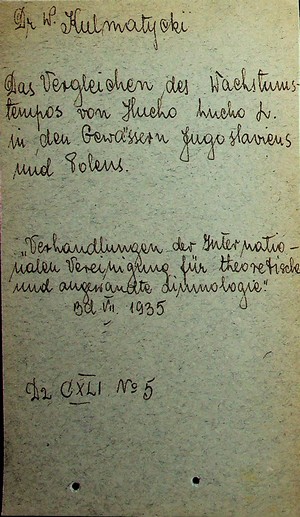 Dr W. Kulmatycki
Das Vergleichen des Wachstums-
tempos von Hucho hucho L.
in den Gewässern Jugoslaviens
und Polens.
„Verhandlungen der Internatio-
nalen Vereinigung für theoretische
und angewandte Limnologie."
Bd. VII. 1935
Dz CXLI No 5